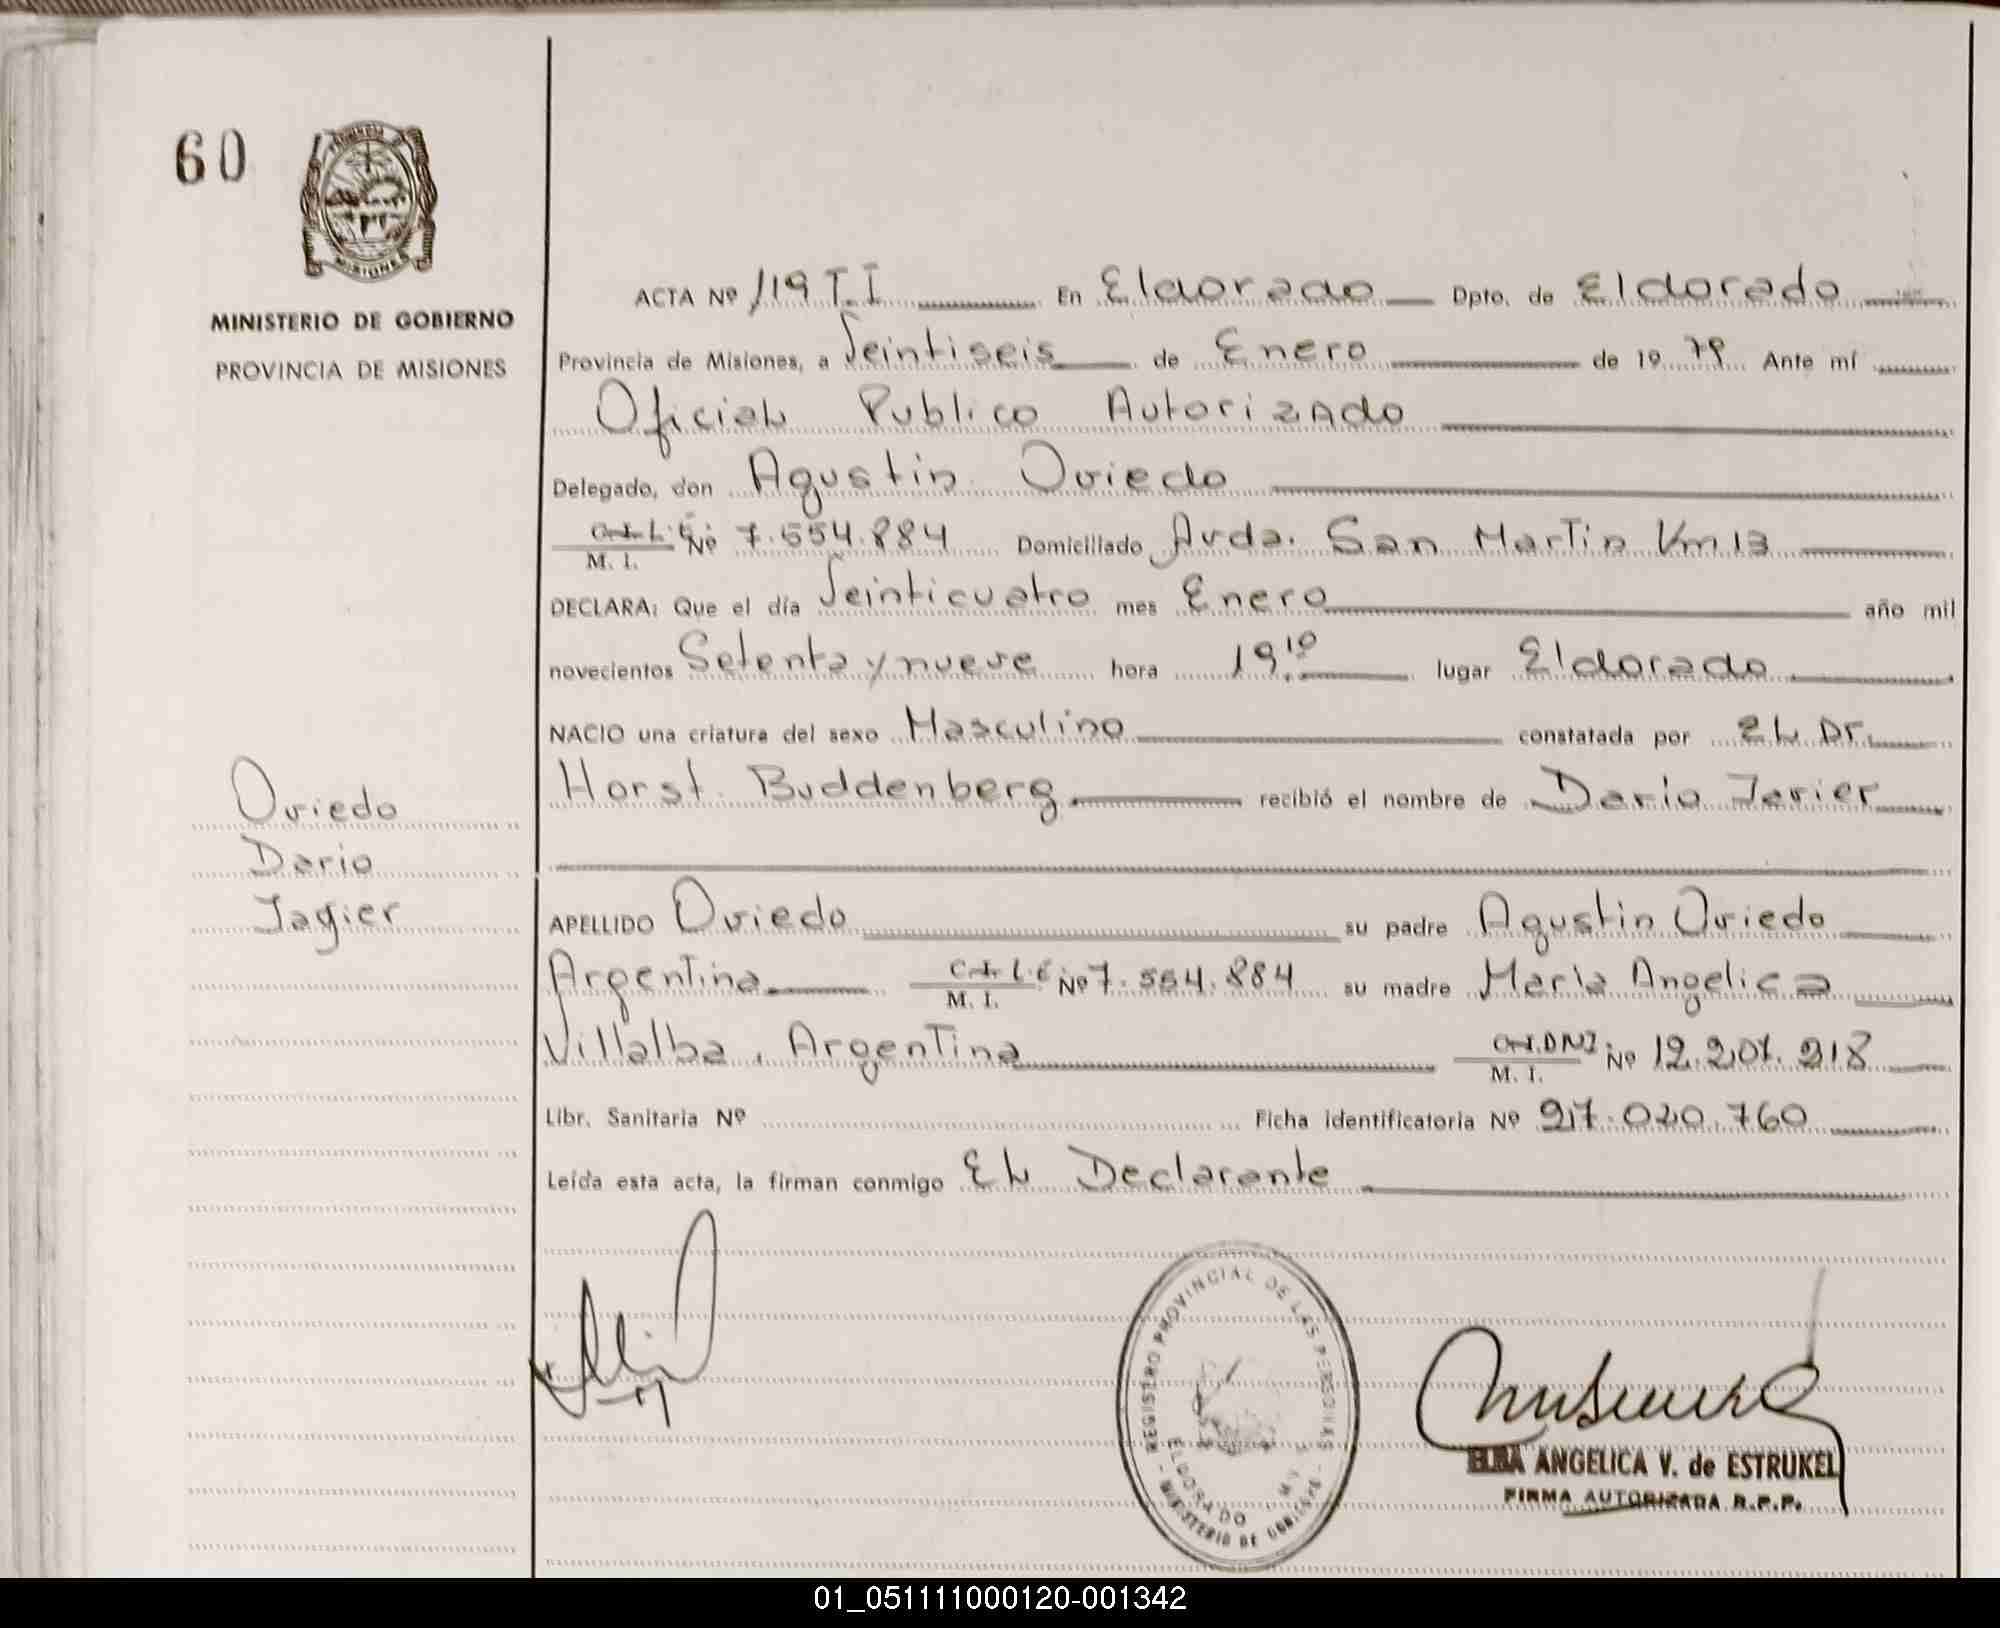 60
PROVINCIA
MISIONES
MINISTERIO DE GOBIERNO
PROVINCIA DE MISIONES
ACTA Nº 119 T.I En Eldorado Dpto. de Eldorado
Provincia de Misiones, a Veintiseis de Enero de 19 79 Ante mí
Oficial Publico Autorizado
Delegado, don Agustin Oviedo
C.I. L.E. M. I. Nº 7.554.884 Domiciliado Avda. San Martin Km 13
DECLARA: Que el día Veinticuatro mes Enero año mil
novecientos Setenta y nueve hora 19.10 lugar Eldorado
NACIO una criatura del sexo Masculino constatada por El Dr.
Horst Buddenberg recibió el nombre de Dario Javier
Oviedo
Dario
Javier
APELLIDO Oviedo su padre Agustin Oviedo
Argentina C.I. L.E M. I. Nº 7.554.884 su madre Maria Angelica
Villalba, Argentina C.I. DNI M. I. Nº 12.207.218
Libr. Sanitaria Nº Ficha identificatoria Nº 27.020.760
Leída esta acta, la firman conmigo El Declarante
REGISTRO PROVINCIAL DE LAS PERSONAS
ELDORADO
MINISTERIO DE GOBIERNO
ELBA ANGELICA V. de ESTRUKEL
FIRMA AUTORIZADA R.P.P.
01_051111000120-001342